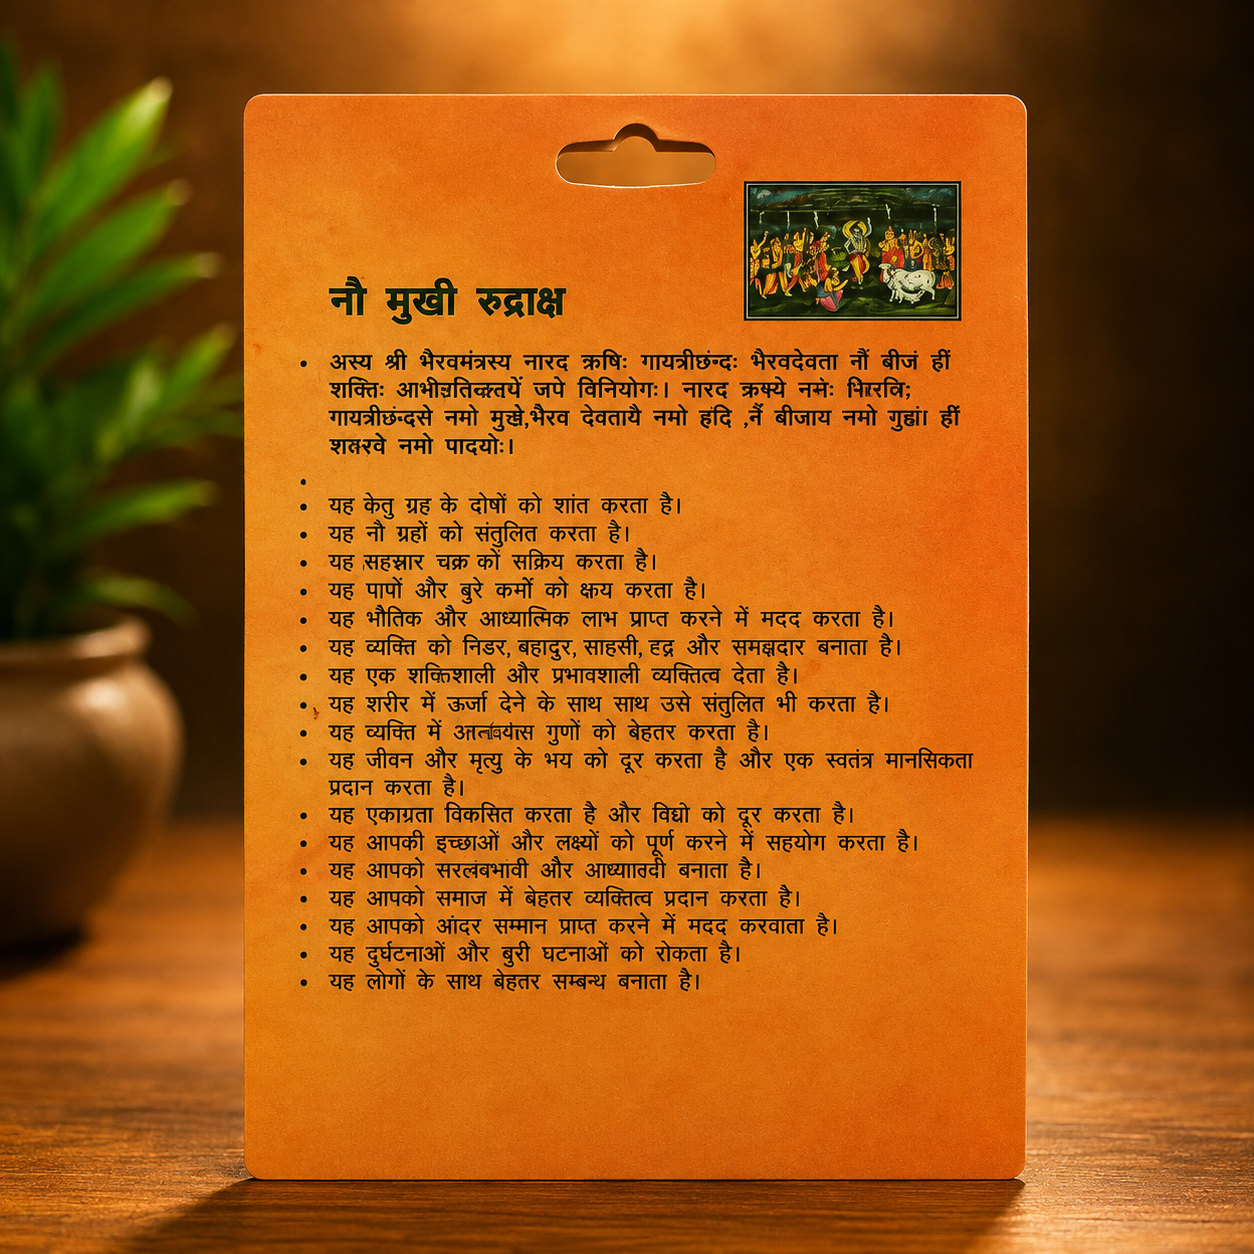 नौ मुखी रुद्राक्ष
• अस्य श्री भैरवमंत्रस्य नारद ऋषिः गायत्रीछंन्दः भैरवदेवता नौं बीजं हीं
शक्तिः जपे विनियोगः। नारद नमेः
गायत्रीछंन्दसे नमो मुखे,भैरव देवतायै नमो हंदि बीजाय नमो हीं
नमो पादयोः।
•
• यह केतु ग्रह के दोषों को शांत करता है।
• यह नौ ग्रहों को संतुलित करता है।
• यह सहस्रार चक्र कों सक्रिय करता है।
• यह पापों और बुरे कर्मो को क्षय करता है।
• यह भौतिक और आध्यात्मिक लाभ प्राप्त करने में मदद करता है।
• यह व्यक्ति को निडर, बहादुर, साहसी, और समझदार बनाता है।
• यह एक शक्तिशाली और प्रभावशाली व्यक्तित्व देता है।
• यह शरीर में ऊर्जा देने के साथ साथ उसे संतुलित भी करता है।
• यह व्यक्ति में गुणों को बेहतर करता है।
• यह जीवन और मृत्यु के भय को दूर करता है और एक स्वतंत्र मानसिकता
प्रदान करता है।
• यह एकाग्रता विकसित करता है और को दूर करता है।
• यह आपकी इच्छाओं और लक्ष्यों को पूर्ण करने में सहयोग करता है।
• यह आपको और बनाता है।
• यह आपको समाज में बेहतर व्यक्तित्व प्रदान करता है।
• यह आपको आंदर सम्मान प्राप्त करने में मदद करवाता है।
• यह दुर्घटनाओं और बुरी घटनाओं को रोकता है।
• यह लोगों के साथ बेहतर सम्बन्ध बनाता है।